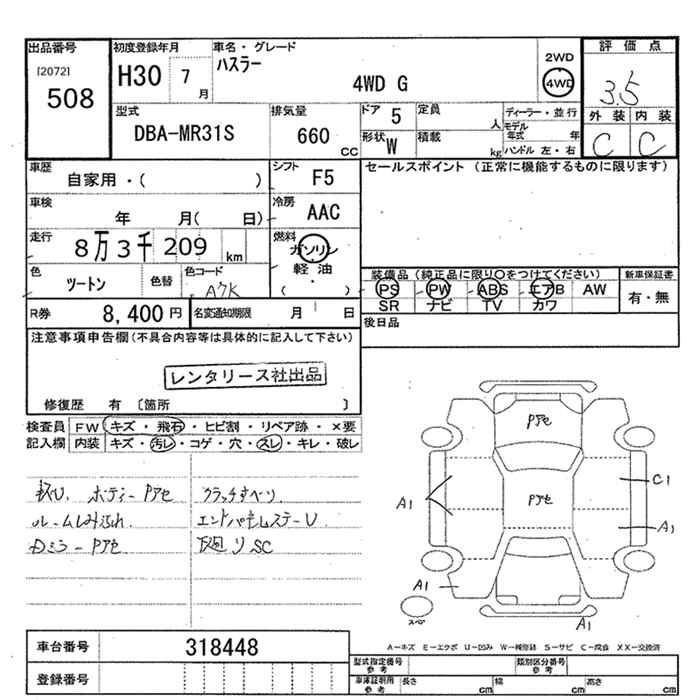 出品番号 初度登録年月 車名・グレード 2WD 評価点
[2072] ハスラー
508 H30 7月 4WD G 4WD 3.5
型式 排気量 ドア 5 定員 人 ディーラー・並行 外装 内装
DBA-MR31S 660 CC 形状 W 積載 kg モデル年式 年 C C
ハンドル 左・右
車歴 シフト F5 セールスポイント (正常に機能するものに限ります)
自家用・( )
車検 年 月( 日) 冷房 AAC
走行 8万3千209 km 燃料 ガソリン
軽油
( ・ )
色 ツートン 色替 色コード A7K
装備品 (純正品に限り○をつけてください) 新車保証書
PS PW ABS エアB AW 有・無
SR ナビ TV カワ
R券 8,400円 名変通知期限 月 日 後日品
注意事項申告欄(不具合内容等は具体的に記入して下さい)
レンタリース社出品
修復歴 有 〔箇所 〕
検査員 FW キズ・飛石・ヒビ割・リペア跡・×要
記入欄 内装 キズ・汚レ・コゲ・穴・スレ・キレ・破レ
ボディーPアセ クラッチすべリ
ルームしみ汚れ
Dミラーアセ SC
Pアセ
Pアセ
C1
A1
A1
A1
スペア
A1
A-キズ E-エクボ U-凹み W-補修跡 S-サビ C-腐食 XX-交換済
車台番号 318448
登録番号
型式指定番号 参考 類別区分番号 参考
車庫証明用 参考 長さ cm 幅 cm 高さ cm